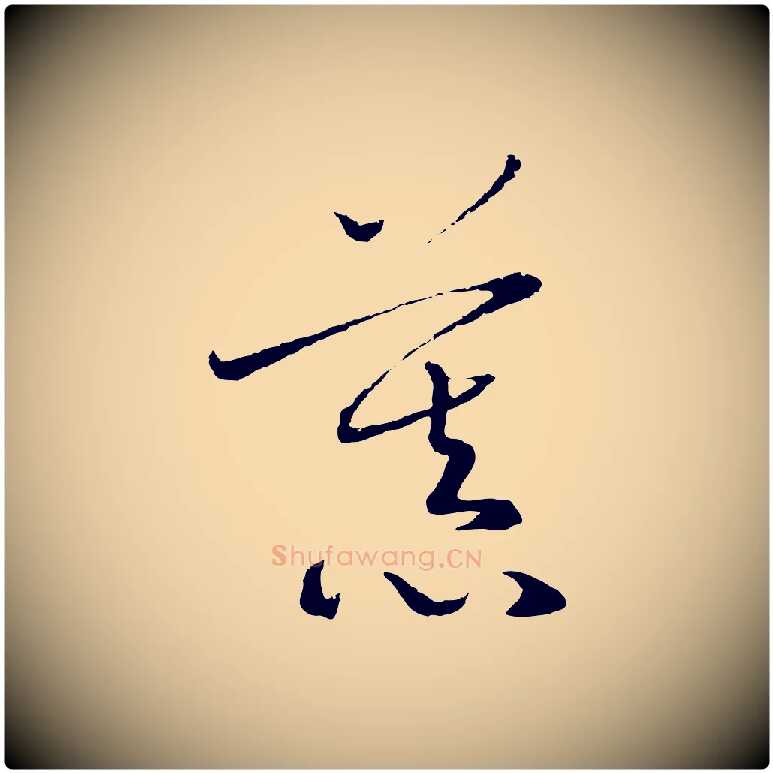 蕉
Shufawang.CN